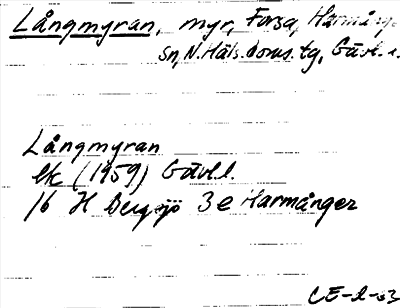 Långmyran, myr, Forsa, Harmång.
sn, N. Häls. doms. tg, Gävl. l.
Långmyran
Ek (1959) Gävl.l.
16 H Bergsjö 3e Harmånger
CE-l-63